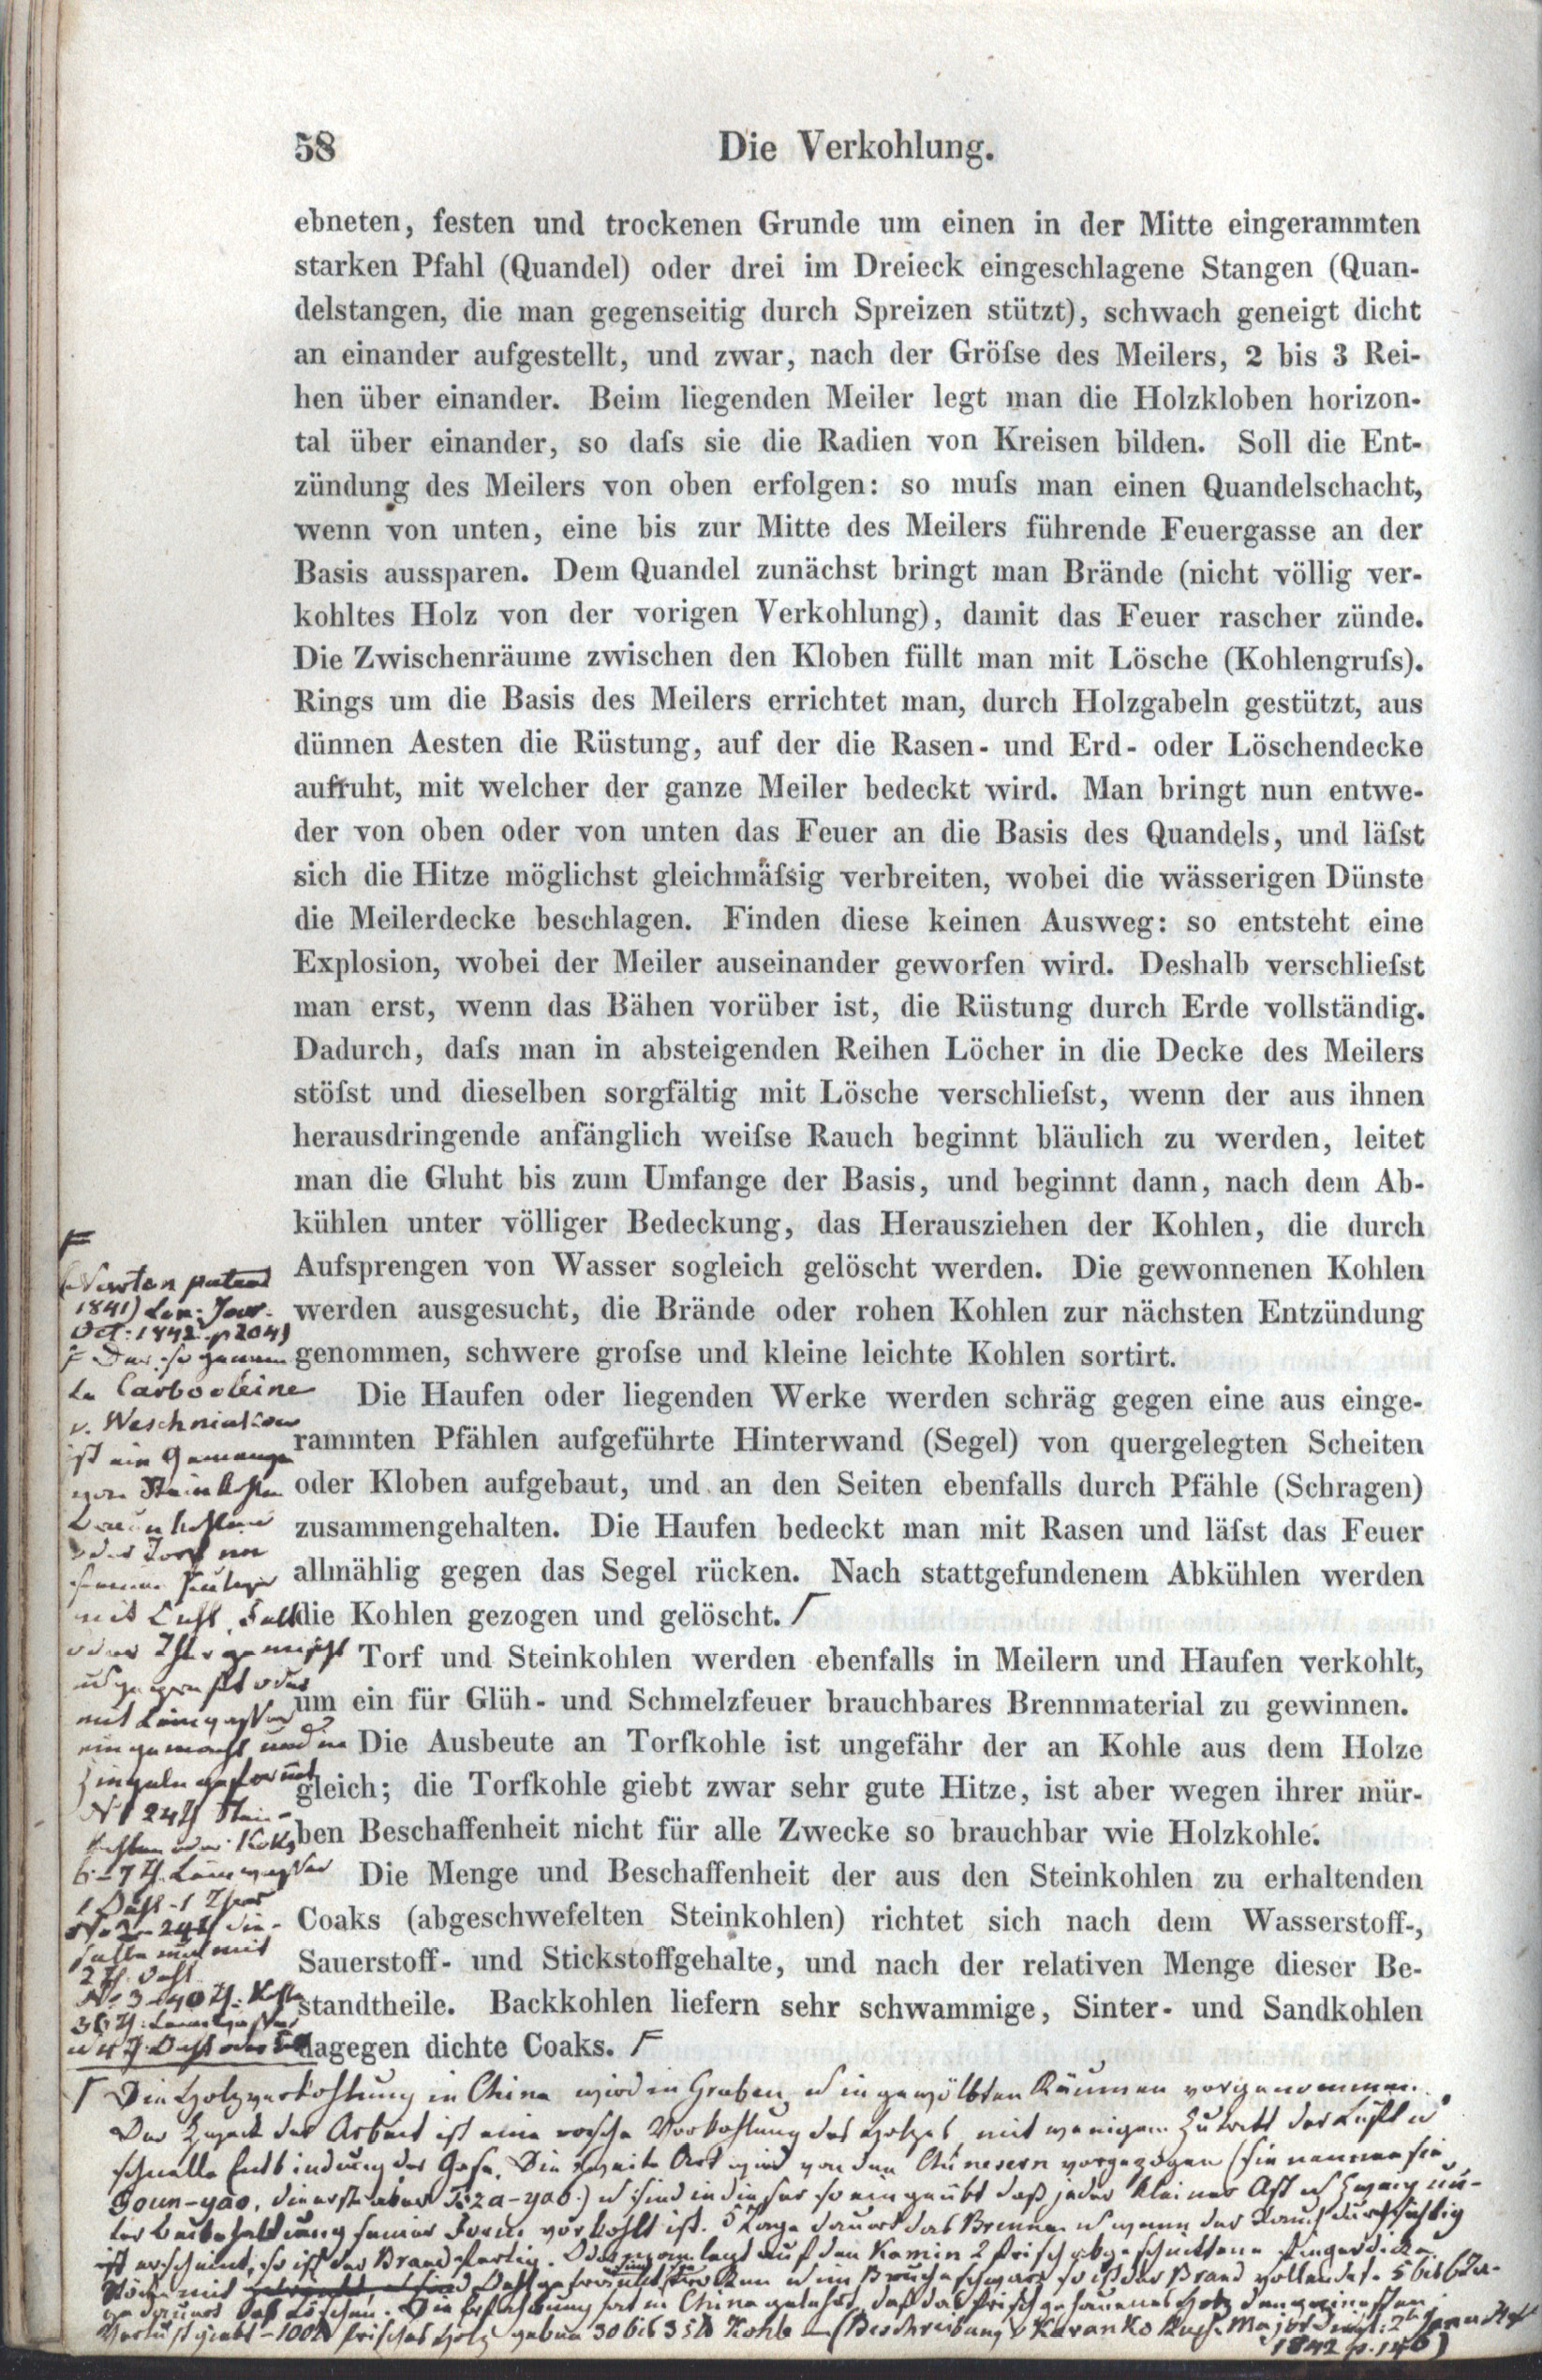 58
Die Verkohlung.
ebneten, festen und trockenen Grunde um einen in der Mitte eingerammten
starken Pfahl (Quandel) oder drei im Dreieck eingeschlagene Stangen (Quan-
delstangen, die man gegenseitig durch Spreizen stützt), schwach geneigt dicht
an einander aufgestellt, und zwar, nach der Gröſse des Meilers, 2 bis 3 Rei-
hen über einander. Beim liegenden Meiler legt man die Holzkloben horizon-
tal über einander, so daſs sie die Radien von Kreisen bilden. Soll die Ent-
zündung des Meilers von oben erfolgen: so muſs man einen Quandelschacht,
wenn von unten, eine bis zur Mitte des Meilers führende Feuergasse an der
Basis aussparen. Dem Quandel zunächst bringt man Brände (nicht völlig ver-
kohltes Holz von der vorigen Verkohlung), damit das Feuer rascher zünde.
Die Zwischenräume zwischen den Kloben füllt man mit Lösche (Kohlengruſs).
Rings um die Basis des Meilers errichtet man, durch Holzgabeln gestützt, aus
dünnen Aesten die Rüstung, auf der die Rasen- und Erd- oder Löschendecke
aufruht, mit welcher der ganze Meiler bedeckt wird. Man bringt nun entwe-
der von oben oder von unten das Feuer an die Basis des Quandels, und läſst
sich die Hitze möglichst gleichmäſsig verbreiten, wobei die wässerigen Dünste
die Meilerdecke beschlagen. Finden diese keinen Ausweg: so entsteht eine
Explosion, wobei der Meiler auseinander geworfen wird. Deshalb verschlieſst
man erst, wenn das Bähen vorüber ist, die Rüstung durch Erde vollständig.
Dadurch, daſs man in absteigenden Reihen Löcher in die Decke des Meilers
stöſst und dieselben sorgfältig mit Lösche verschlieſst, wenn der aus ihnen
herausdringende anfänglich weiſse Rauch beginnt bläulich zu werden, leitet
man die Gluht bis zum Umfange der Basis, und beginnt dann, nach dem Ab-
kühlen unter völliger Bedeckung, das Herausziehen der Kohlen, die durch
Aufsprengen von Wasser sogleich gelöscht werden. Die gewonnenen Kohlen
werden ausgesucht, die Brände oder rohen Kohlen zur nächsten Entzündung
genommen, schwere groſse und kleine leichte Kohlen sortirt.
Die Haufen oder liegenden Werke werden schräg gegen eine aus einge-
rammten Pfählen aufgeführte Hinterwand (Segel) von quergelegten Scheiten
oder Kloben aufgebaut, und an den Seiten ebenfalls durch Pfähle (Schragen)
zusammengehalten. Die Haufen bedeckt man mit Rasen und läſst das Feuer
allmählig gegen das Segel rücken. Nach stattgefundenem Abkühlen werden
die Kohlen gezogen und gelöscht.
Torf und Steinkohlen werden ebenfalls in Meilern und Haufen verkohlt,
um ein für Glüh- und Schmelzfeuer brauchbares Brennmaterial zu gewinnen.
Die Ausbeute an Torfkohle ist ungefähr der an Kohle aus dem Holze
gleich; die Torfkohle giebt zwar sehr gute Hitze, ist aber wegen ihrer mür-
ben Beschaffenheit nicht für alle Zwecke so brauchbar wie Holzkohle.
Die Menge und Beschaffenheit der aus den Steinkohlen zu erhaltenden
Coaks (abgeschwefelten Steinkohlen) richtet sich nach dem Wasserstoff-,
Sauerstoff- und Stickstoffgehalte, und nach der relativen Menge dieser Be-
standtheile. Backkohlen liefern sehr schwammige, Sinter- und Sandkohlen
dagegen dichte Coaks.
(Newton patent
1841) Lon: Jour.
Oct: 1842 p 204)
Das so genann
te Carboleine
v. Weschniakow
ist ein Gemenge
von Steinkohlen
Braunkohlen
oder Torf
mit Oehl,
oder Theer gemischt
mit Leimwasser
eingemacht und in
Ziegeln geformt
N 1 24 Th Stein-
kohlen oder Koks
6-7 Th. Leimwasser
1 Oehl - 1 Theer
selbe mit
2 Th. Oehl
No 3 - 40 Th: Kohle
Die Holzverkohlung in China wird in Gruben u in gewölbten Räumen vorgenommen.
Der Zweck der Arbeit ist eine rasche Verkohlung des Holzes mit wenigem Zutritt der Luft u
schnelle Entbindung der Gase. Die zweite Art wird von den Chinesern vorgezogen (sie nennen sie
Goun-yao, die erste aber Tsza-yao.) u sind in dieser so eingeübt daß jeder kleiner Ast u Zweig un-
ter Beibehaltung seiner Form verkohlt ist. 5 Tage dauert das Brennen u wenn der Rauch durchsichtig
erscheint, so ist der Brand fertig. Oder man legt auf den Kamin 2 frisch abgeschnittene fingerdicke
Stöcke mit Oehl getränkt u im Bruche schwarz so ist der Brand vollendet. 5 bis 6 Ta-
ge dauert das Löschen. Die Erfahrung hat in China gelehrt, daß das frisch gehauene Holz den geringsten
Verlust giebt - 100 frisches Holz geben 30 bis 35 Kohle - (Beschreibung v Kavanko Russ. Major Dingl: 2 Januar Heft
1842 p. 146)